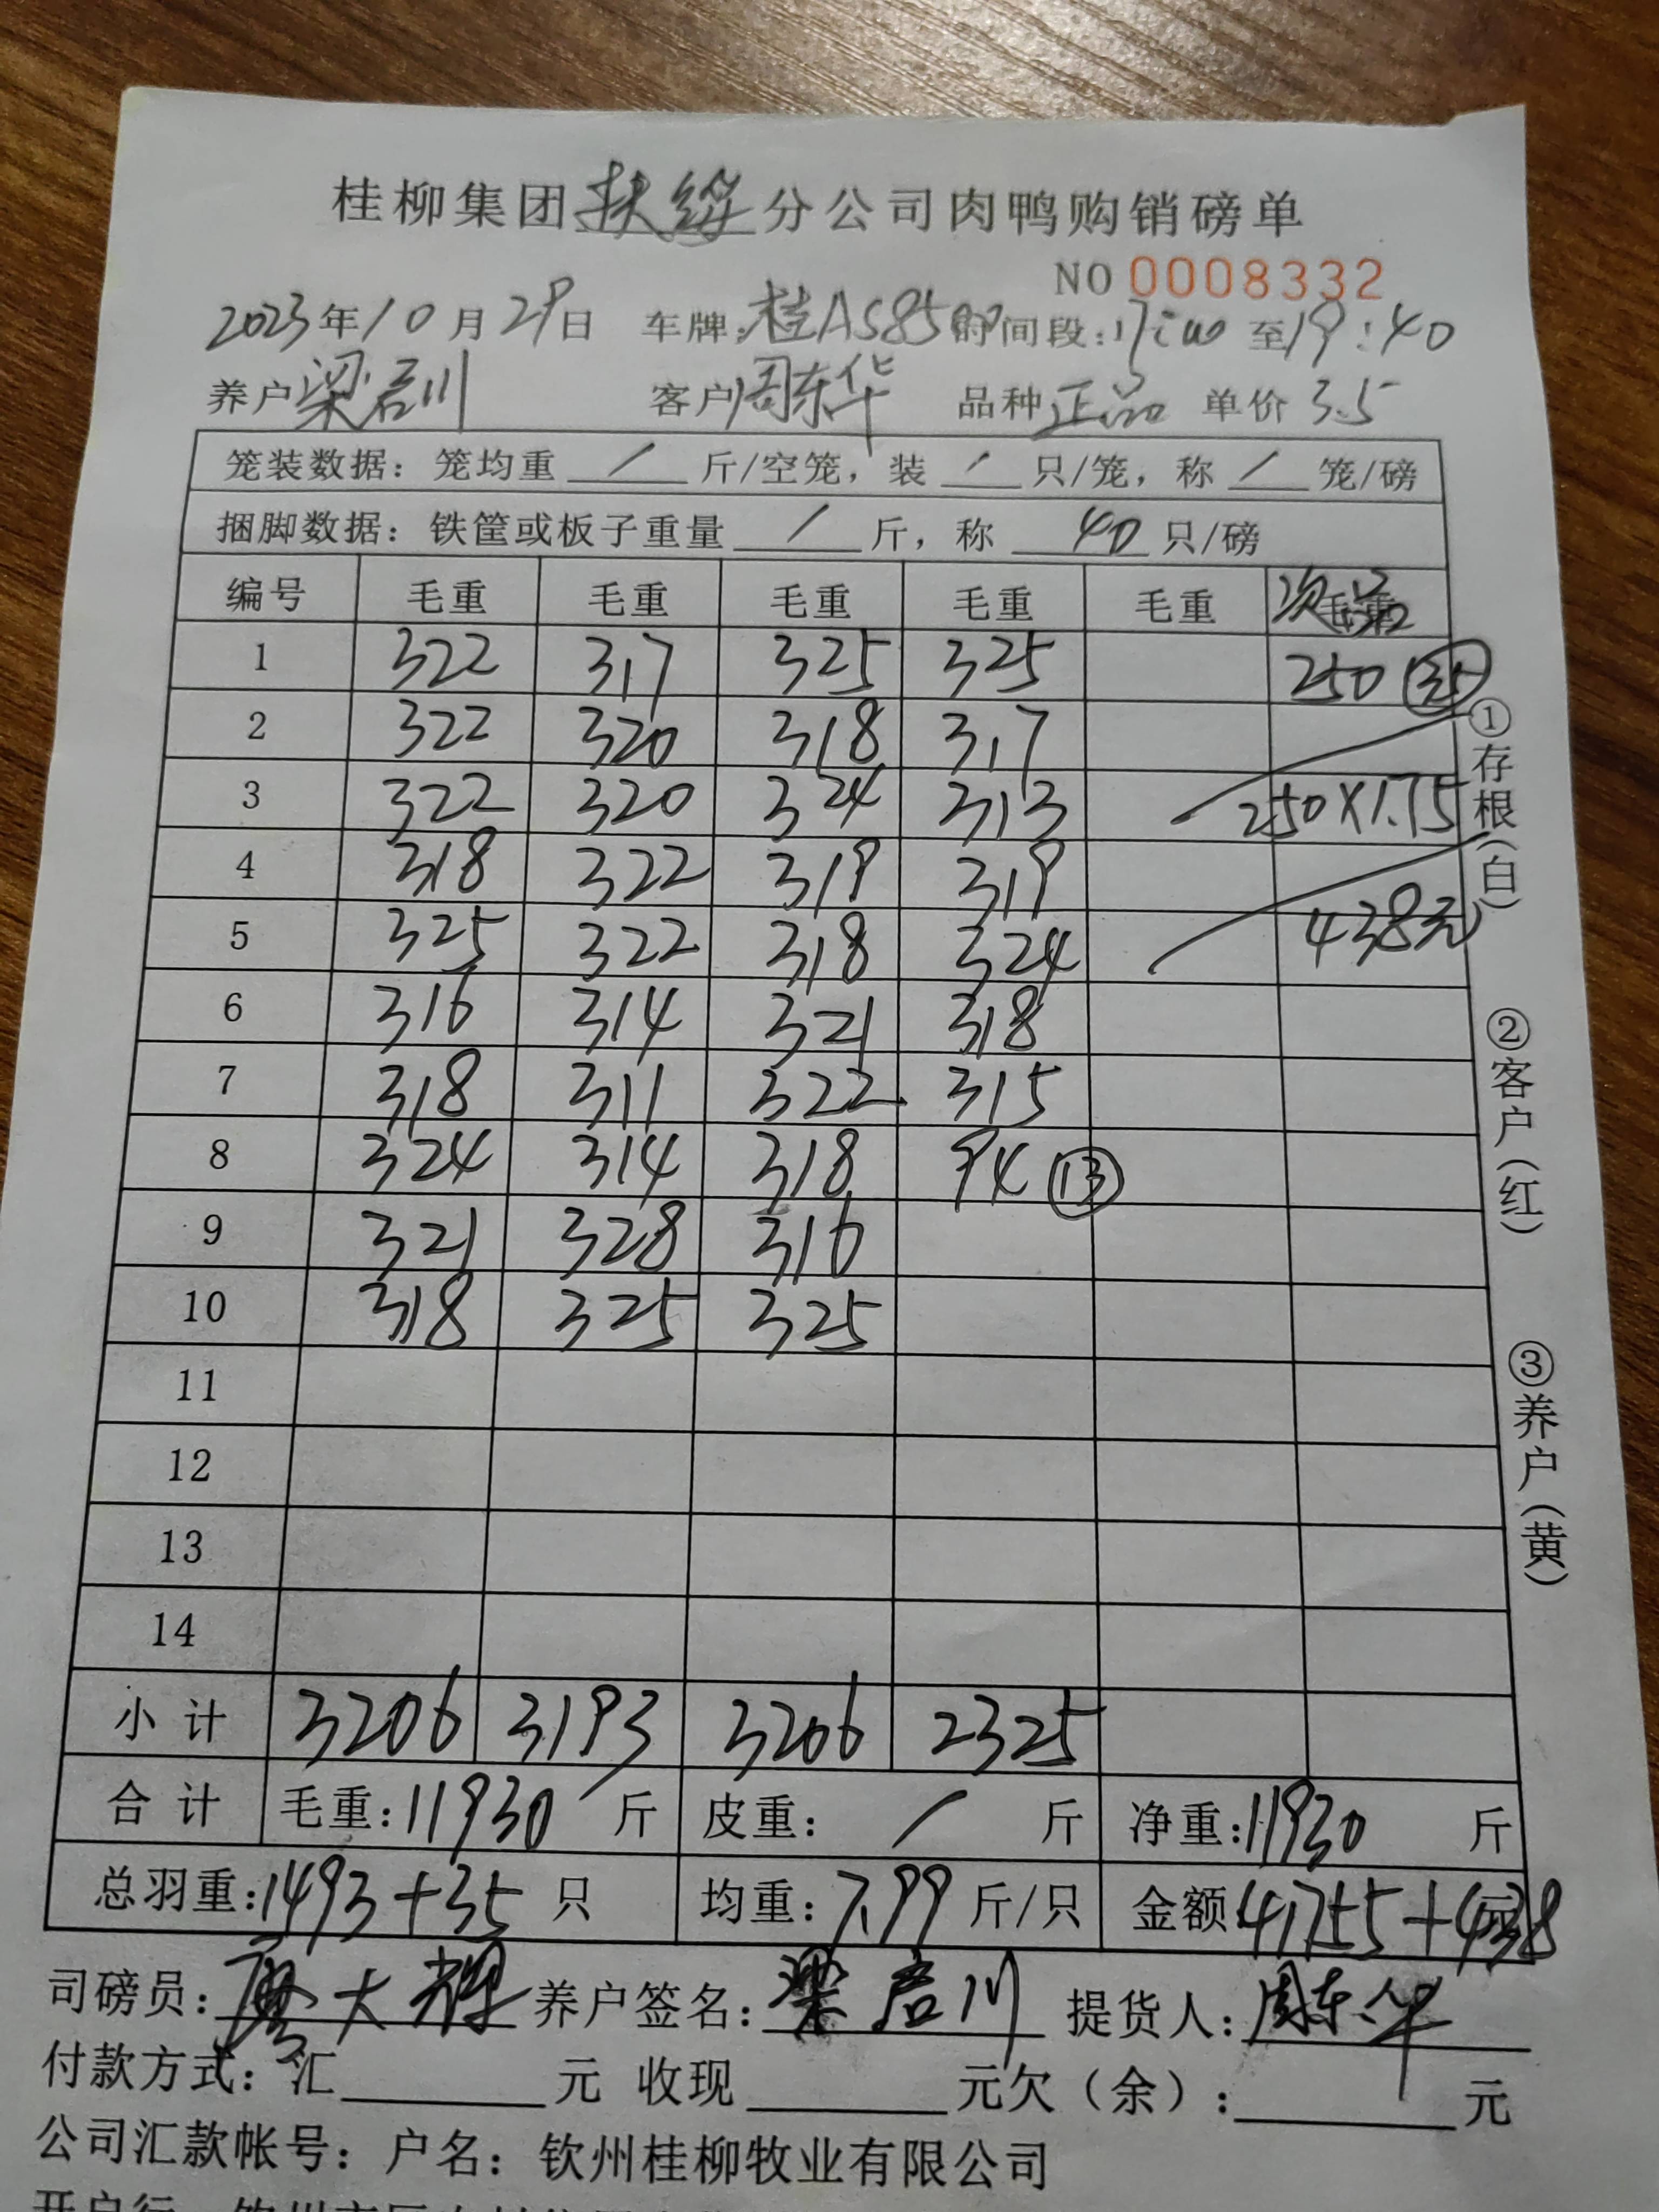 桂柳集团扶绥分公司肉鸭购销磅单
NO 0008332
2023年10月29日 车牌:桂AS85 时间段: 至19:40
养户梁君川 客户周东华 品种正品 单价3.5
笼装数据：笼均重 / 斤/空笼，装 / 只/笼，称 / 笼/磅
捆脚数据：铁筐或板子重量 / 斤，称 40 只/磅
编号 毛重 毛重 毛重 毛重 毛重 次品
1 322 317 325 325 250 35
2 322 320 318 317
3 322 320 324 313 250×1.75
4 318 322 319 319
5 325 322 318 324 438元
6 316 314 321 318
7 318 311 322 315
8 324 314 318 94 13
9 321 328 316
10 318 325 325
11
12
13
14
小计 3206 3193 3206 2325
合计 毛重:11930 斤 皮重: / 斤 净重:11930 斤
总羽重:1493+35 只 均重:7.99 斤/只 金额:41755+438
司磅员:廖大辉 养户签名:梁君川 提货人:周东华
付款方式：汇 元 收现 元欠（余）: 元
公司汇款帐号：户名：钦州桂柳牧业有限公司
①存根（白） ②客户（红） ③养户（黄）